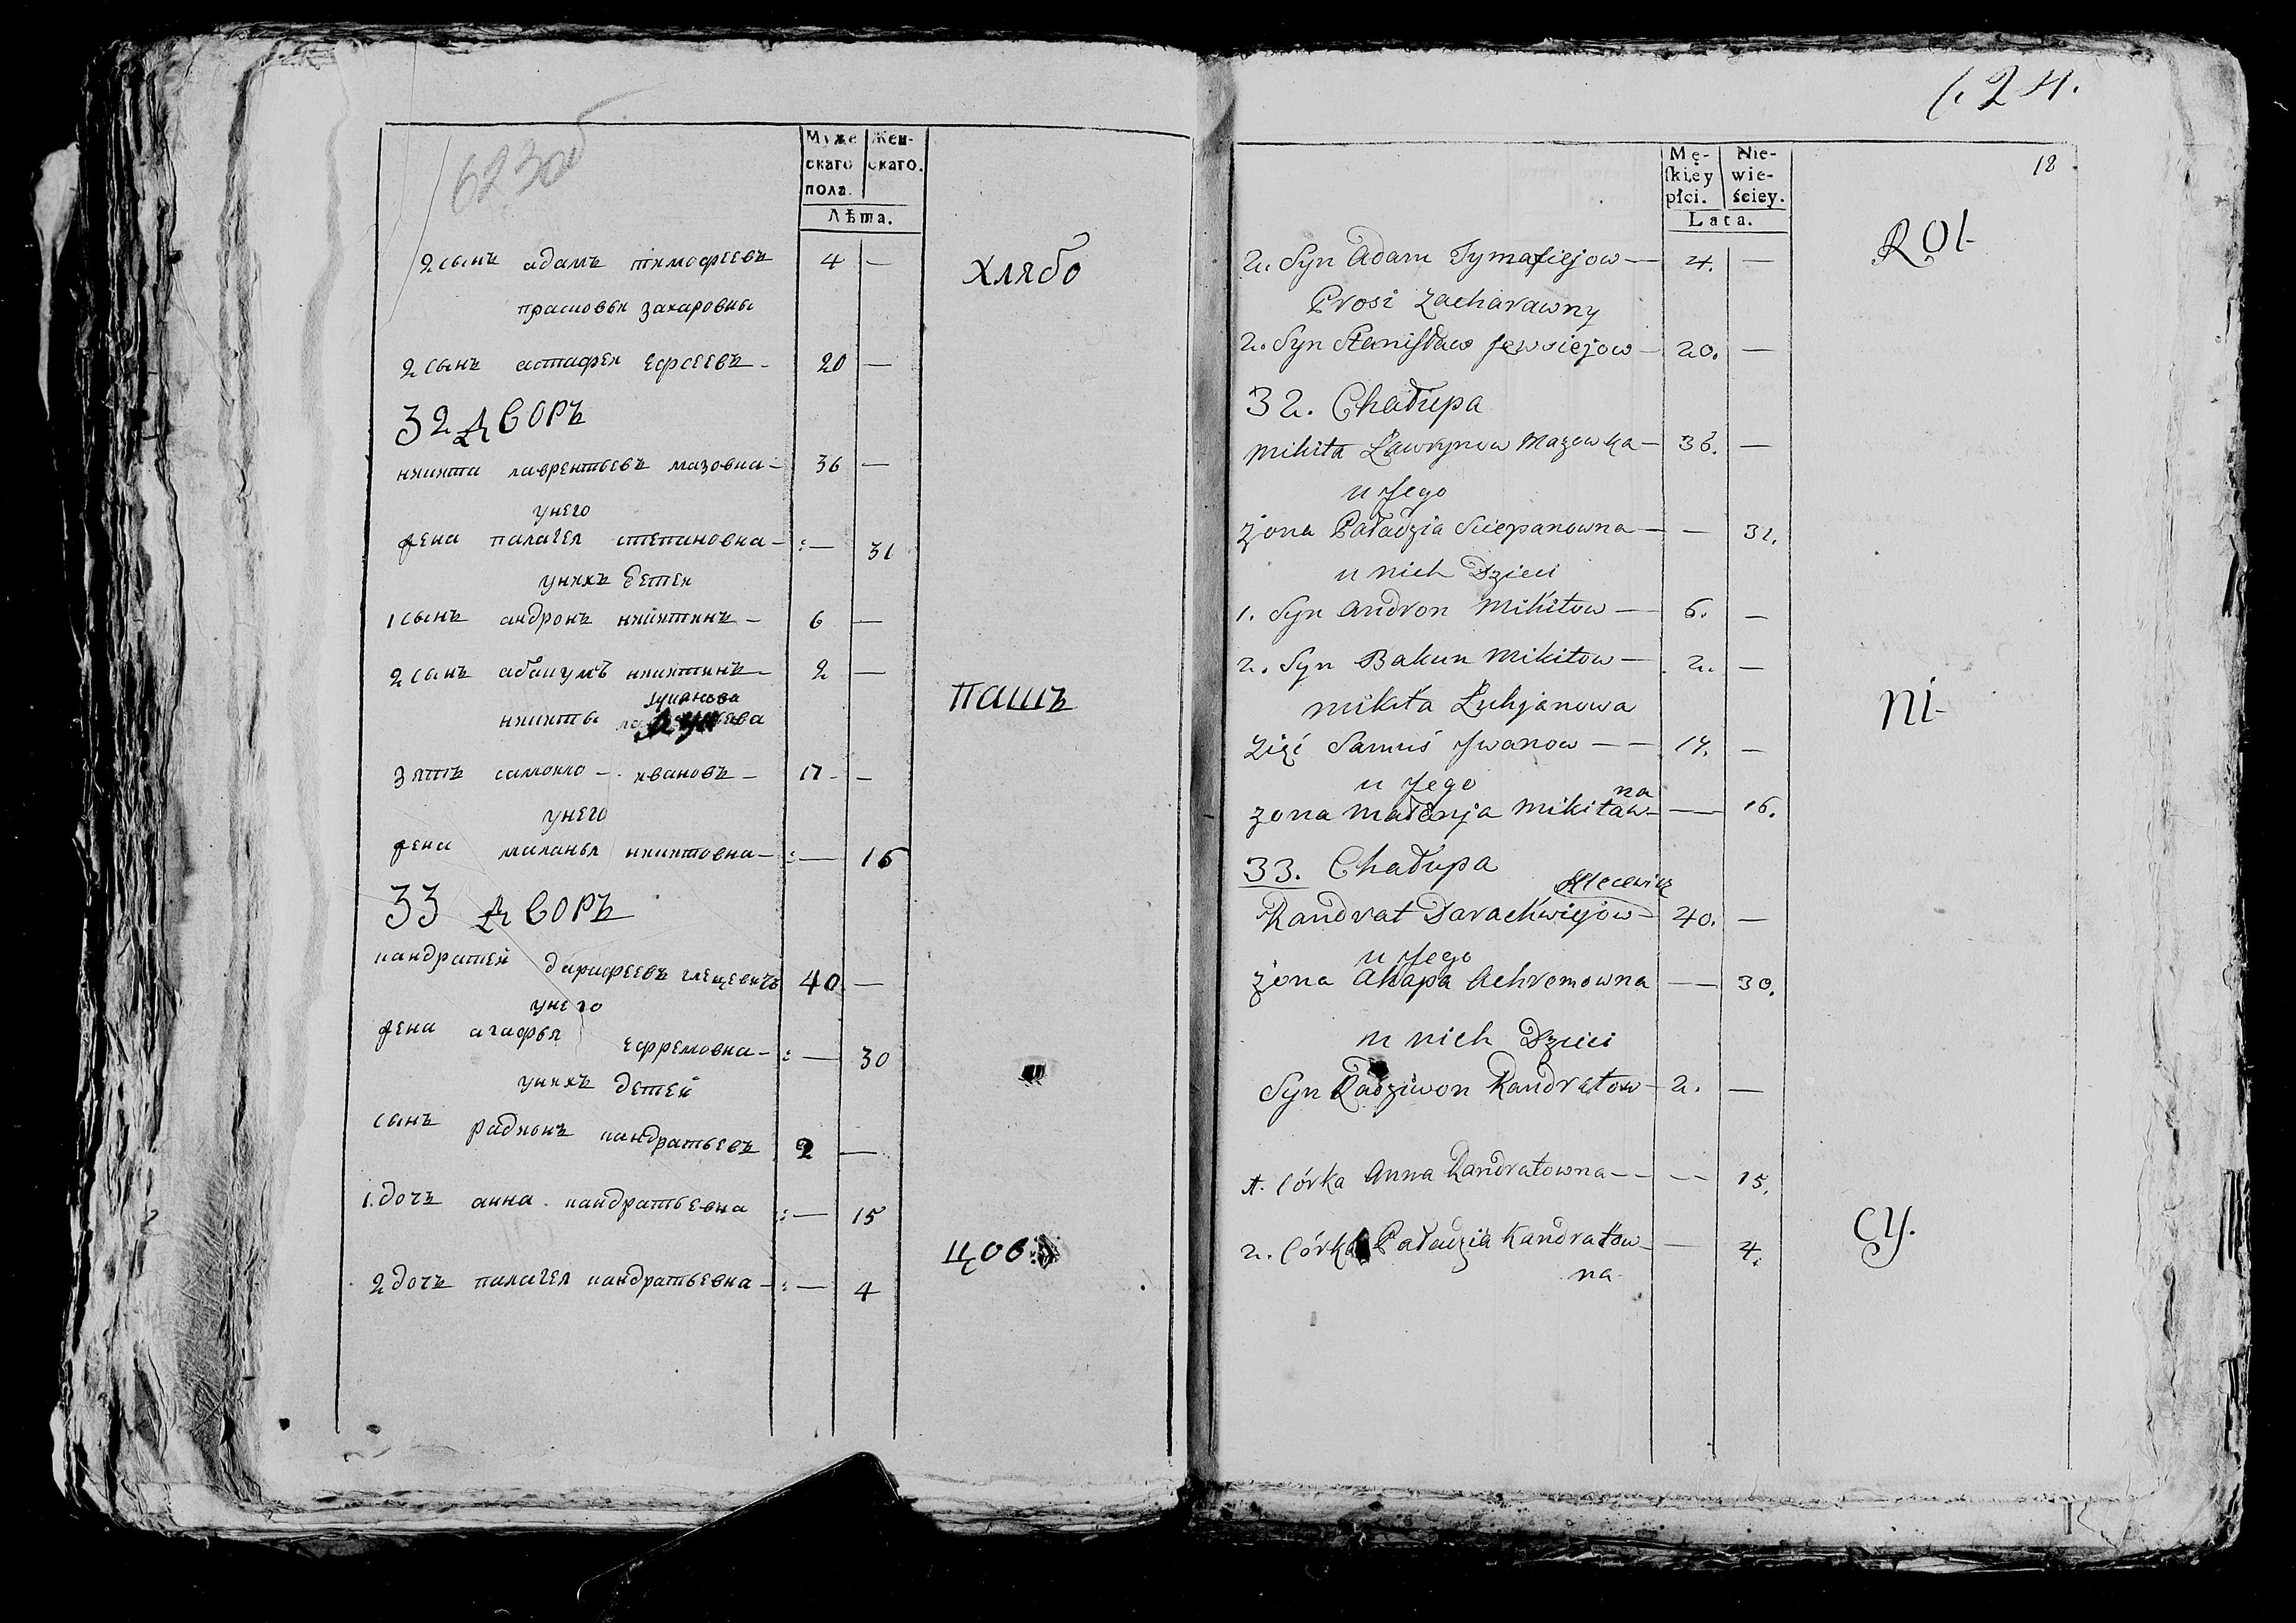 623об
Муже
скаго
пола.
Жен-
скаго.
Лѣта.
2 сынъ адамъ тимофеевъ 4 —
прасковьи захаровны
2 сынъ астафеи евсеевъ - 20 —
32 дворъ
никита лаврентьевъ мазовка - 36 —
унего
жена палагея степановна - :— 31
унихъ детеи
1 сынъ андронъ никитинъ - 6 —
2 сынъ никитинъ - 2 —
лукянова
никиты
зять самоило - ивановъ - 17 - —
унего
жена маланья никитовна - :— 16
33 дворъ
кандратей дарафеевъ глецевичъ 40 —
унего
жена агафья ефремовна - :— 30
унихъ детей
сынъ радионъ кандратьевъ 2 —
1. дочь анна кандратьевна :— 15
2 дочь палагея кандратьевна - :— 4
хлябо
пашъ
цовъ
1.24.
18
Mę-
ſkiey
płci.
Nie-
wie-
ściey.
Lata.
2. Syn Adam Tymafiejow — 4. —
Prosi Zacharawny
2. Syn Stanisław Jewsiejow — 20. —
32. Chałupa
Mikita Ławrynow Mazowka — 36. —
u Jego
Zona Paładzia Sciepanowna — — 31.
u nich Dzieci
1. Syn Andron Mikitow — 6. —
2. Syn Bakun Mikitow — 2. —
Mikita Łukjanowa
Zięć Samuś Jwanow — — 17. —
u Jego
na
Zona Małanja Mikitaw- — 16.
33. Chałupa
Kandrat Darachwiejow — 40. —
u Jego
Zona Ahapa Achremowna — 30.
u nich Dzieci
Syn Radziwon Kandratow — 2. —
1. Córka Anna Kandratowna — — — 15.
2. Córka Paładzia Kandratow- — 4.
na
Rol-
ni-
cy.